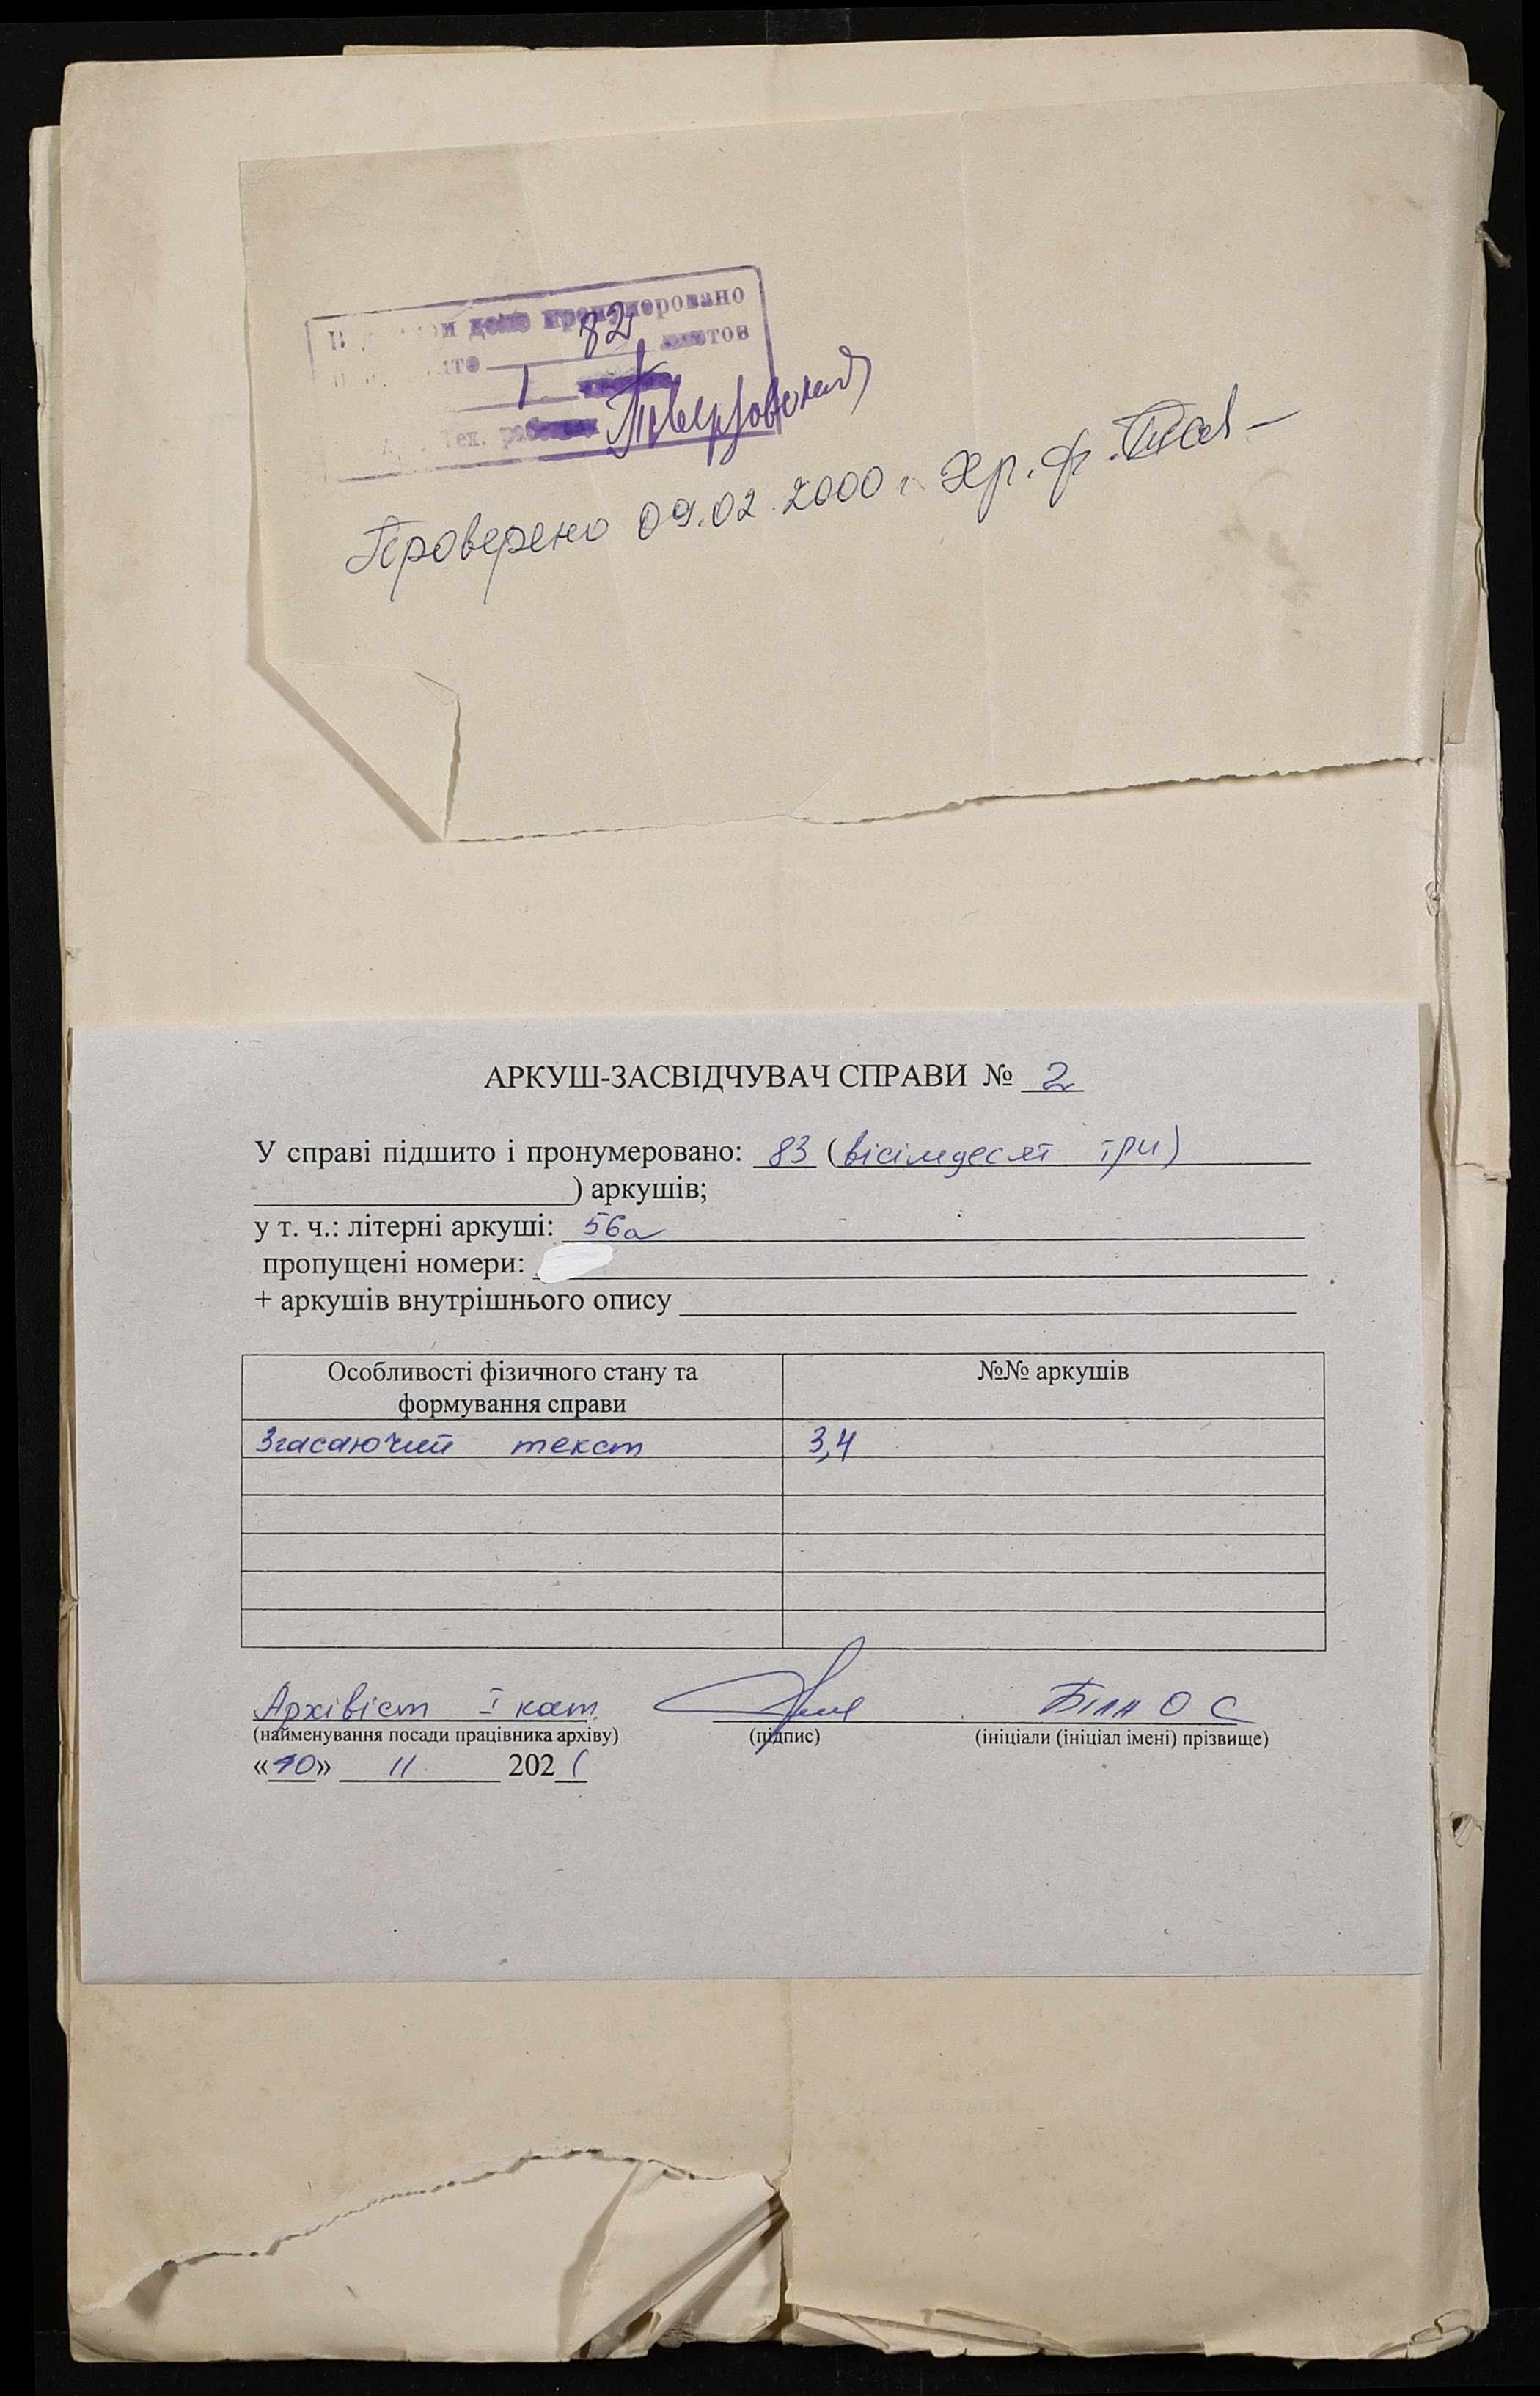 деле пронумеровано
82 листов
1
Тех. работник
Проверено 09.02.2000 г. Хр. ф.
АРКУШ-ЗАСВІДЧУВАЧ СПРАВИ № 2
У справі підшито і пронумеровано: 83 (вісімдесят три)
) аркушів;
у т. ч.: літерні аркуші: 56а
пропущені номери:
+ аркушів внутрішнього опису
Особливості фізичного стану та №№ аркушів
формування справи
Згасаючий текст 3,4
Архівіст I кат. Білан О С
(найменування посади працівника архіву) (підпис) (ініціали (ініціал імені) прізвище)
«10» 11 2021